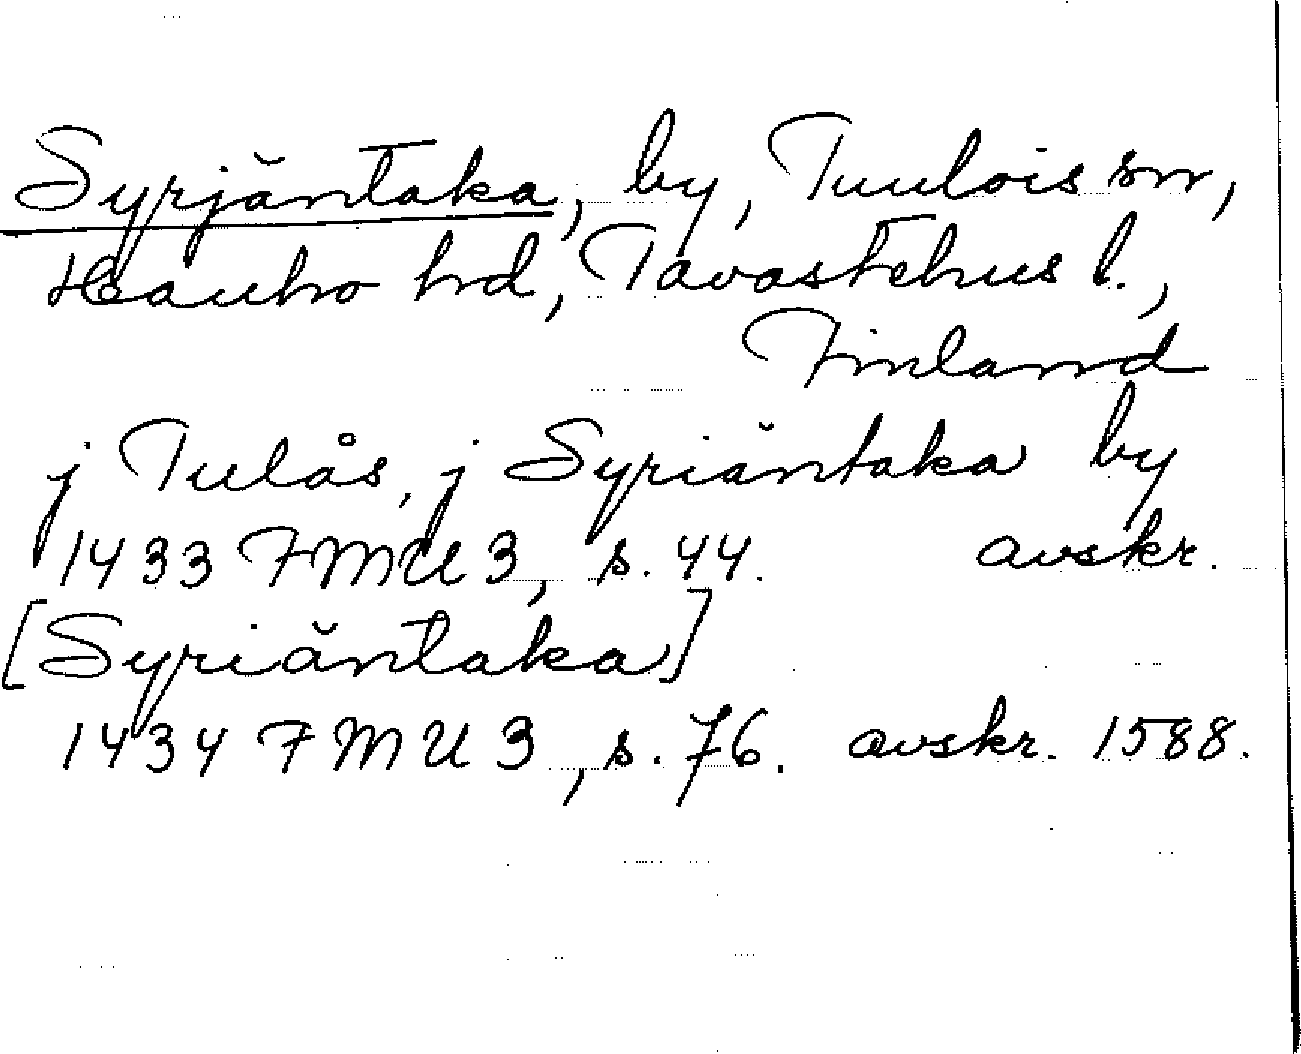 Syrjäntaka, by, Tuulois sn,
Hauho hd, Tavastehus l.,
Finland
j Tulås, j Syriäntaka by
1433 FMU 3, s. 44. avskr.
[Syriäntaka]
1434 FMU 3, s. 76. avskr. 1588.